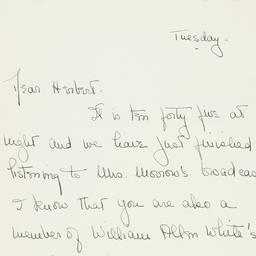 Tuesday-
Dear Herbert-
It is ten forty five at
night and we have just finished
listening to Mrs. Morrow's broadcas
I know that you are also a
member of William Allen White's